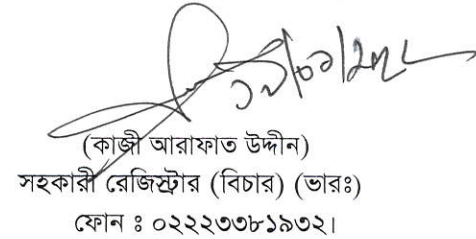 (কাজী আরাফাত উদ্দীন)
সহকারী রেজিস্ট্রার (বিচার) (ভারঃ)
ফোন ঃ ০২২২৩৩৮১৯৩২।